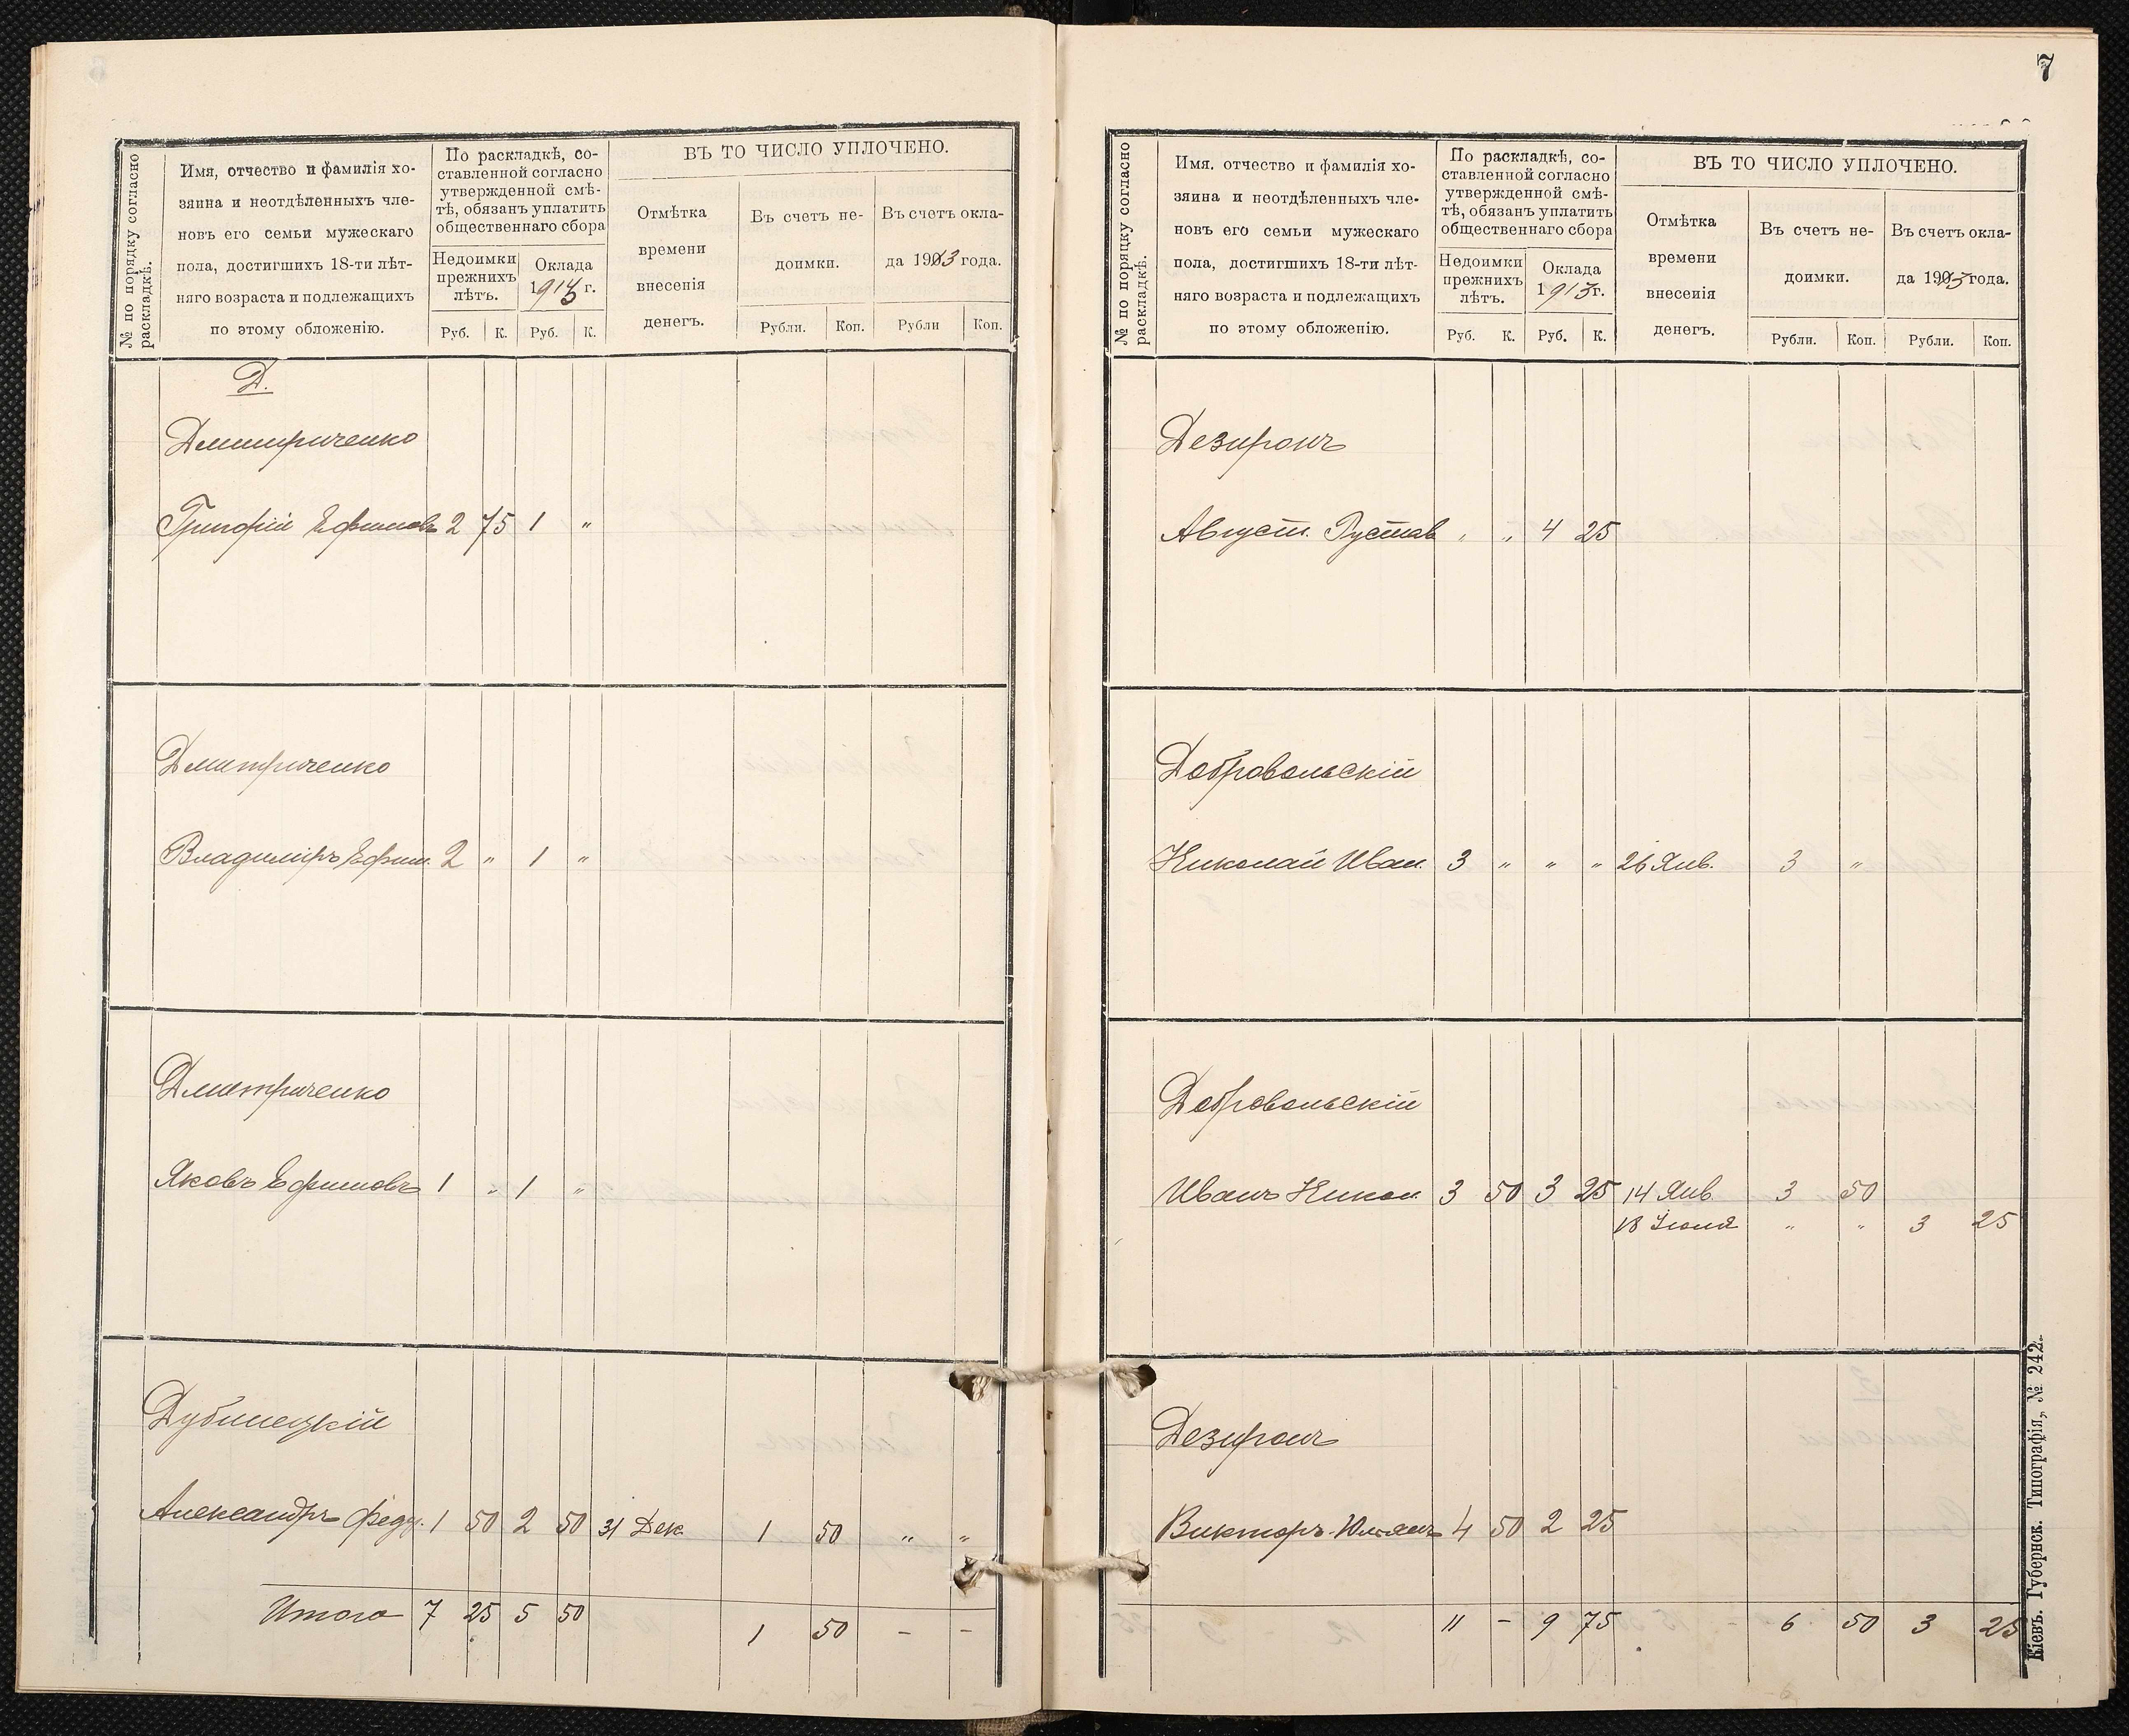 7
№ по порядку согласно раскладкѣ.
Имя, отчество и фамилія хо-
зяина и неотдѣленныхъ чле-
новъ его семьи мужескаго
пола, достигшихъ 18-ти лѣт-
няго возраста и подлежащихъ
по этому обложенію.
По раскладкѣ, со-
ставленной согласно
утвержденной смѣ-
тѣ, обязанъ уплатить
общественнаго сбора
Недоимки
прежнихъ
лѣтъ.
Оклада
1913 г.
Руб. К. Руб. К.
ВЪ ТО ЧИСЛО УПЛОЧЕНО.
Отмѣтка
времени
внесенія
денегъ.
Въ счетъ не-
доимки.
Въ счетъ окла-
да 1913 года.
Рубли. Коп. Рубли Коп.
Д.
Дмитриченко
Григорій Ефимовъ 2 75 1 "
Дмитриченко
Владиміръ Ефим. 2 " 1 "
Дмитриченко
Яковъ Ефимовъ 1 " 1 "
Дубинецкій
Александръ Федр. 1 50 2 50 31 Дек. 1 50 " "
Итого 7 25 5 50 1 50 - -
№ по порядку согласно раскладкѣ.
Имя. отчество и фамилія хо-
зяина и неотдѣленныхъ чле-
новъ его семьи мужескаго
пола, достигшихъ 18-ти лѣт-
няго возраста и подлежащихъ
по этому обложенію.
По раскладкѣ, со-
ставленной согласно
утвержденной смѣ-
тѣ, обязанъ уплатить
общественнаго сбора
Недоимки
прежнихъ
лѣтъ.
Оклада
1913г.
Руб. К. Руб. К.
ВЪ ТО ЧИСЛО УПЛОЧЕНО.
Отмѣтка
времени
внесенія
денегъ.
Въ счетъ не-
доимки.
Въ счетъ окла-
да 1913 года.
Рубли. Коп. Рубли. Коп.
Дезиронъ
Август. Густав " " 4 25
Добровольскій
Николай Иван. 3 " " " 26 Янв. 3 "
Добровольскій
Иванъ Никол. 3 50 3 25 14 Янв. 3 50
18 Іюня " " 3 25
Дезиронъ
Викторъ 4 50 2 25
11 - 9 75 6 50 3 25
Кіевъ. Губернск. Типографія, № 242.